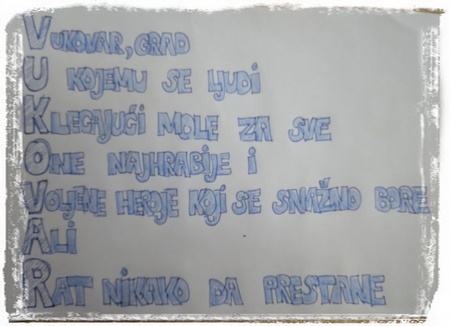 VUKOVAR, GRAD
U KOJEMU SE LJUDI
KLEČEĆI MOLE ZA SVE
ONE NAJHRABIJE I
VOLJENE HEROJE KOJI SE SNAŽNO BORE
ALI
RAT NIKAKO DA PRESTANE